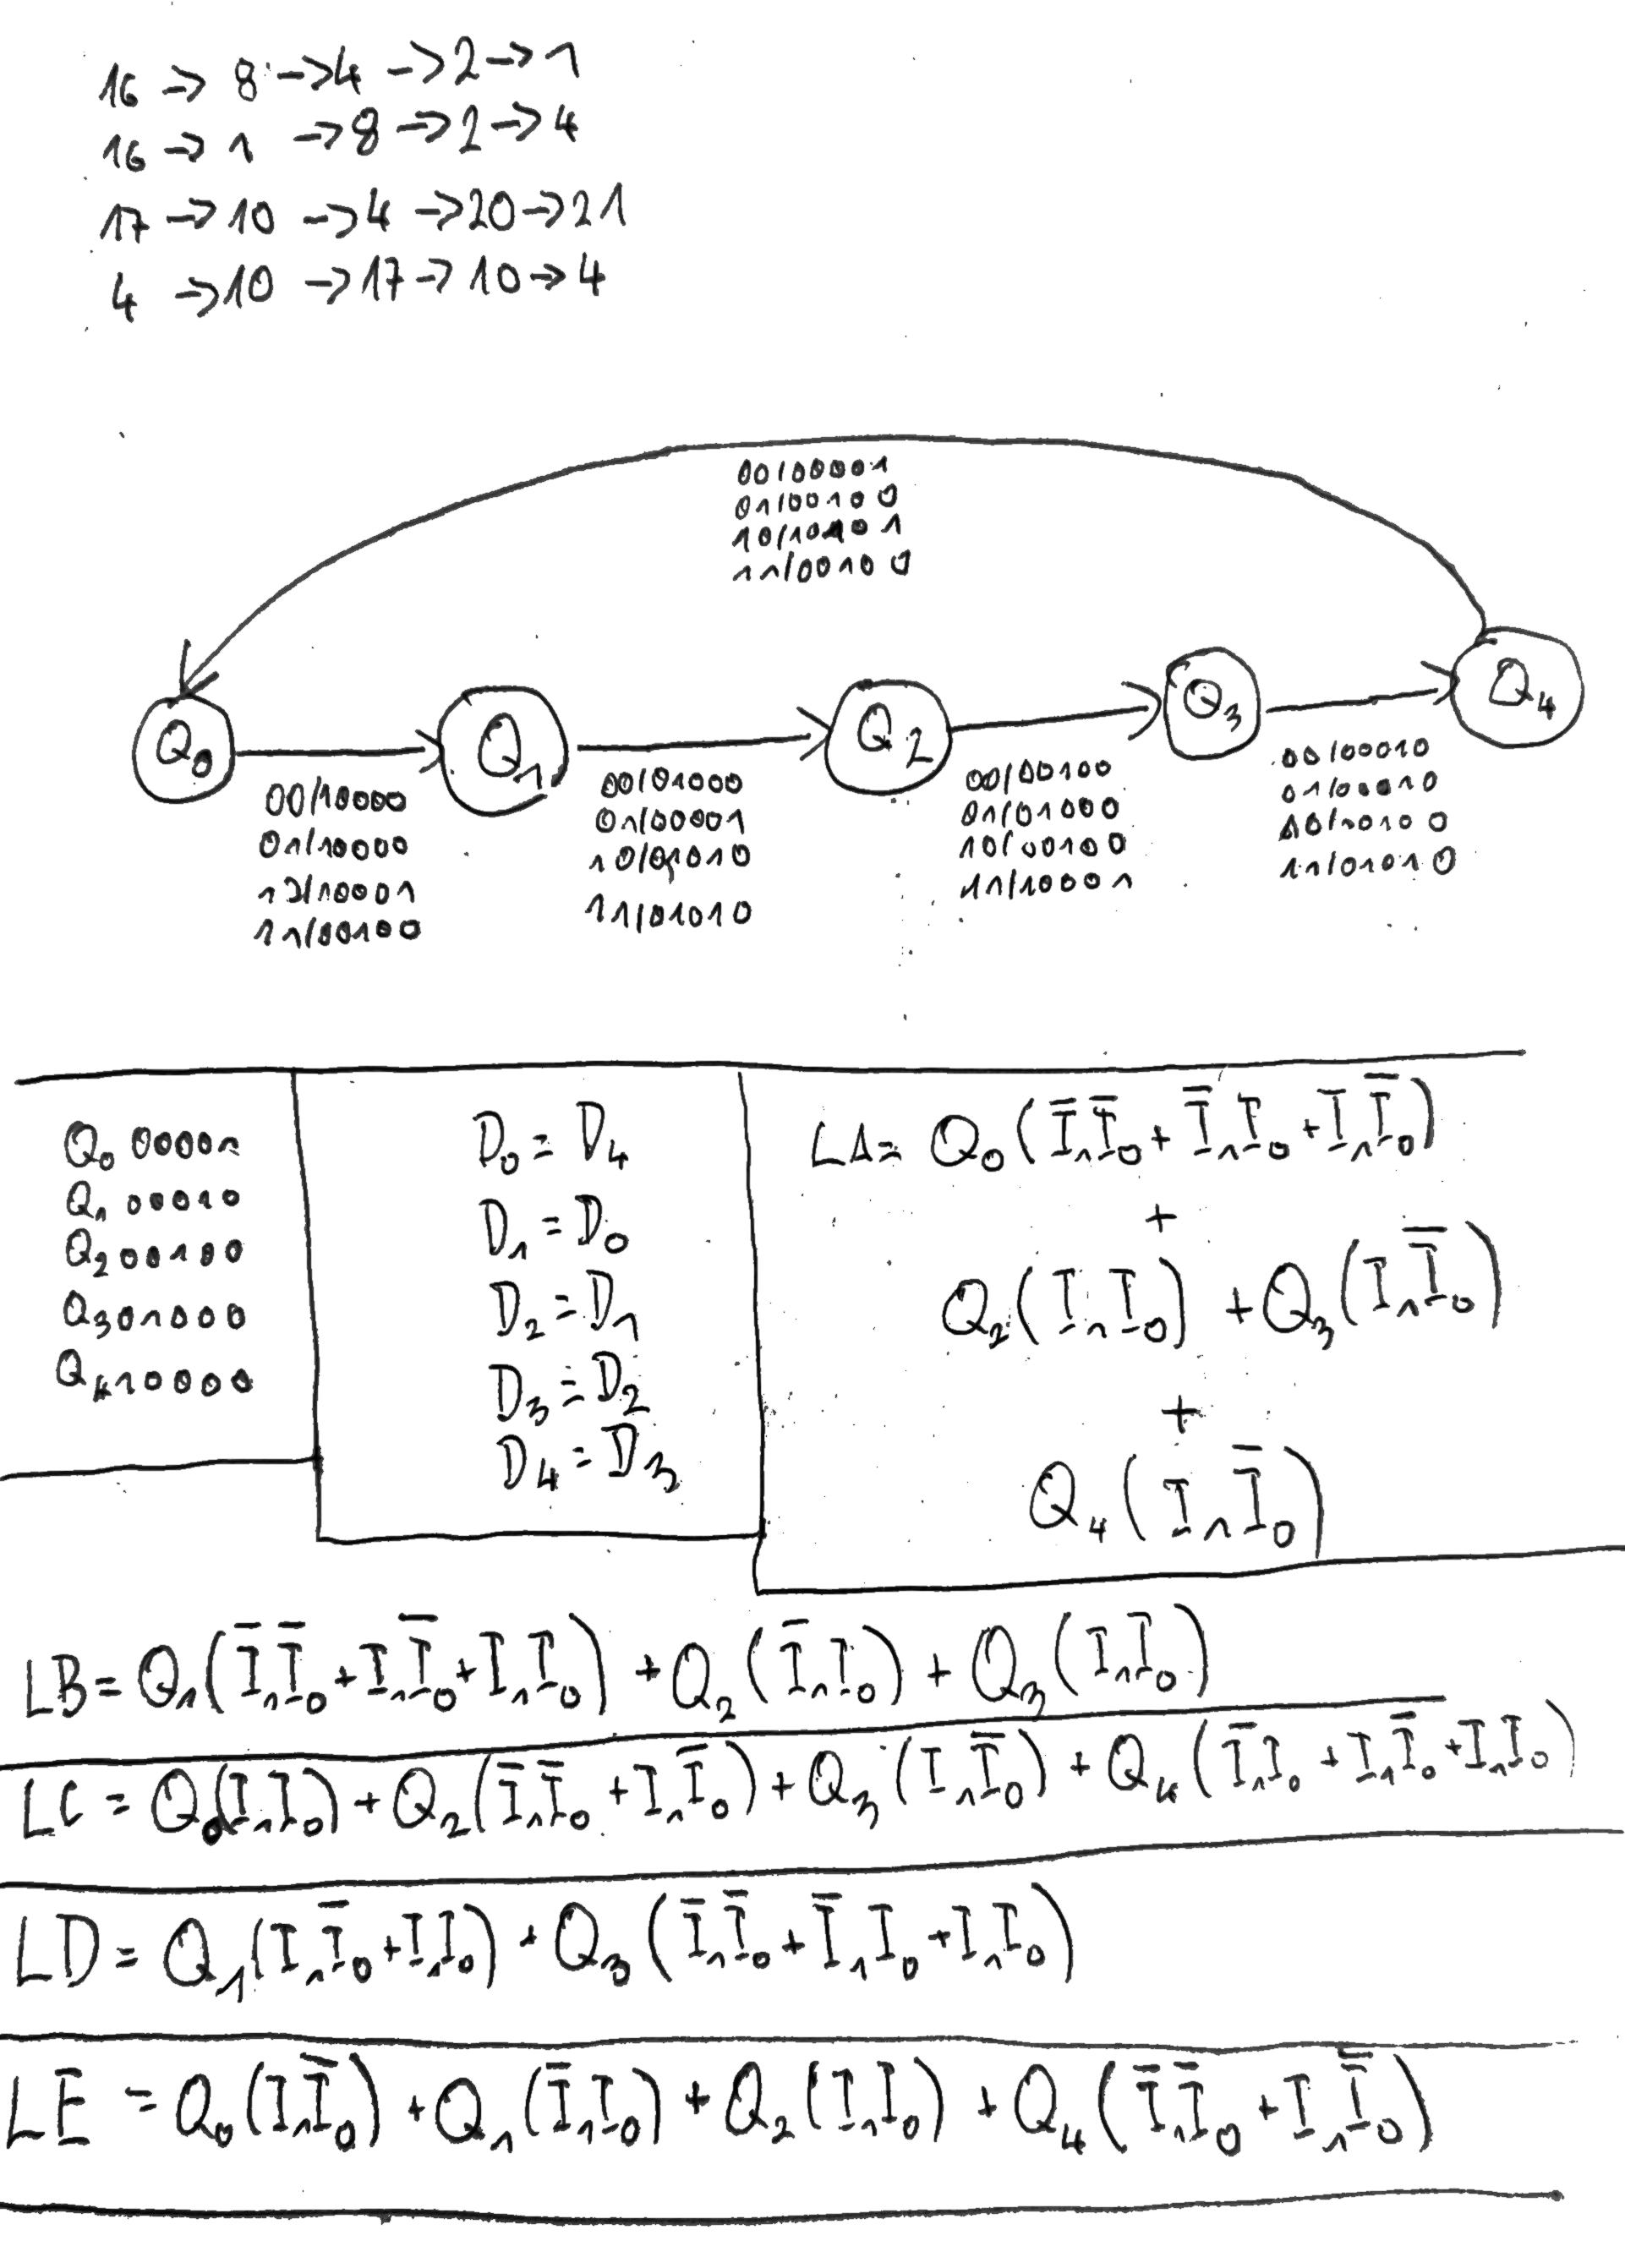 16 -> 8 -> 4 -> 2 -> 1
16 -> 1 -> 8 -> 2 -> 4
17 -> 10 -> 4 -> 20 -> 21
4 -> 10 -> 17 -> 10 -> 4
00/00001
01/00100
10/10101
11/00100
Q₀ Q₁ Q₂ Q₃ Q₄
00/10000
01/10000
10/10001
11/00100
00/01000
01/00001
10/01010
11/01010
00/00100
01/01000
10/00100
11/10001
00/00010
01/00010
10/10100
11/01010
Q₀ 00001
Q₁ 00010
Q₂ 00100
Q₃ 01000
Q₄ 10000
D₀ = D₄
D₁ = D₀
D₂ = D₁
D₃ = D₂
D₄ = D₃
LA = Q₀(Ī₁Ī₀ + Ī₁I₀ + I₁Ī₀)
+
Q₂(I₁I₀) + Q₃(I₁Ī₀)
+
Q₄(I₁Ī₀)
LB = Q₁(Ī₁Ī₀ + I₁Ī₀ + I₁I₀) + Q₂(Ī₁I₀) + Q₃(I₁I₀)
LC = Q₀(I₁I₀) + Q₂(Ī₁Ī₀ + I₁Ī₀) + Q₃(I₁Ī₀) + Q₄(Ī₁I₀ + I₁Ī₀ + I₁I₀)
LD = Q₁(I₁Ī₀ + I₁I₀) + Q₃(Ī₁Ī₀ + Ī₁I₀ + I₁I₀)
LE = Q₀(I₁Ī₀) + Q₁(Ī₁I₀) + Q₂(I₁I₀) + Q₄(Ī₁Ī₀ + I₁Ī₀)